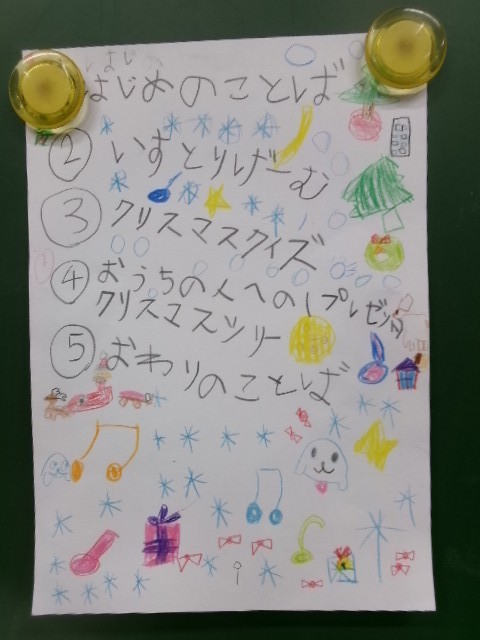 はじめのことば
② いすとりげーむ
③ クリスマスクイズ
④ おうちの人へのプレゼント
クリスマスツリー
⑤ おわりのことば